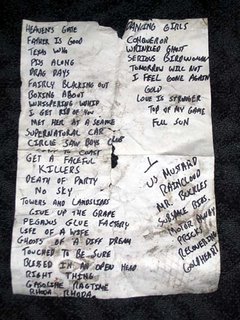 HEAVEN'S GATE
FATHER IS GOOD
TEXAS WHO
PISS ALONG
DRAG DAYS
FAIRLY BLACKING OUT
BOXING ABOUT
WHISPERING WHIP
I GET RID OF YOU
MET HER AT A SEANCE
SUPERNATURAL CAR
CIRCLE SAW BOYS CLUB
COAST TO COAST
GET A FACEFUL
KILLERS
DEATH OF PARTY
NO SKY
TOWERS AND LANDSLIDES
GIVE UP THE GRAPE
PEGASUS GLUE FACTORY
LIFE OF A WIFE
GHOSTS OF A DIFF DREAM
TOUCHED TO BE SURE
BLESSED IN AN OPEN HEAD
RIGHT THING
GASOLINE RAGTIME
RHODA RHODA
DANCING GIRLS
CONQUEROR
WRINKLED GHOST
SERIOUS BIRDWOMAN
TOMORROW WILL NOT
I FEEL GONE AGAIN
GOLD
LOVE IS STRONGER
TOP OF MY GAME
FULL SUN
US MUSTARD
RAINCLOUD
MR. BUCKLES
SUBSPACE BIOS.
MOTOR AWAY
PRICKS
RECOVERING
GOLD HEART